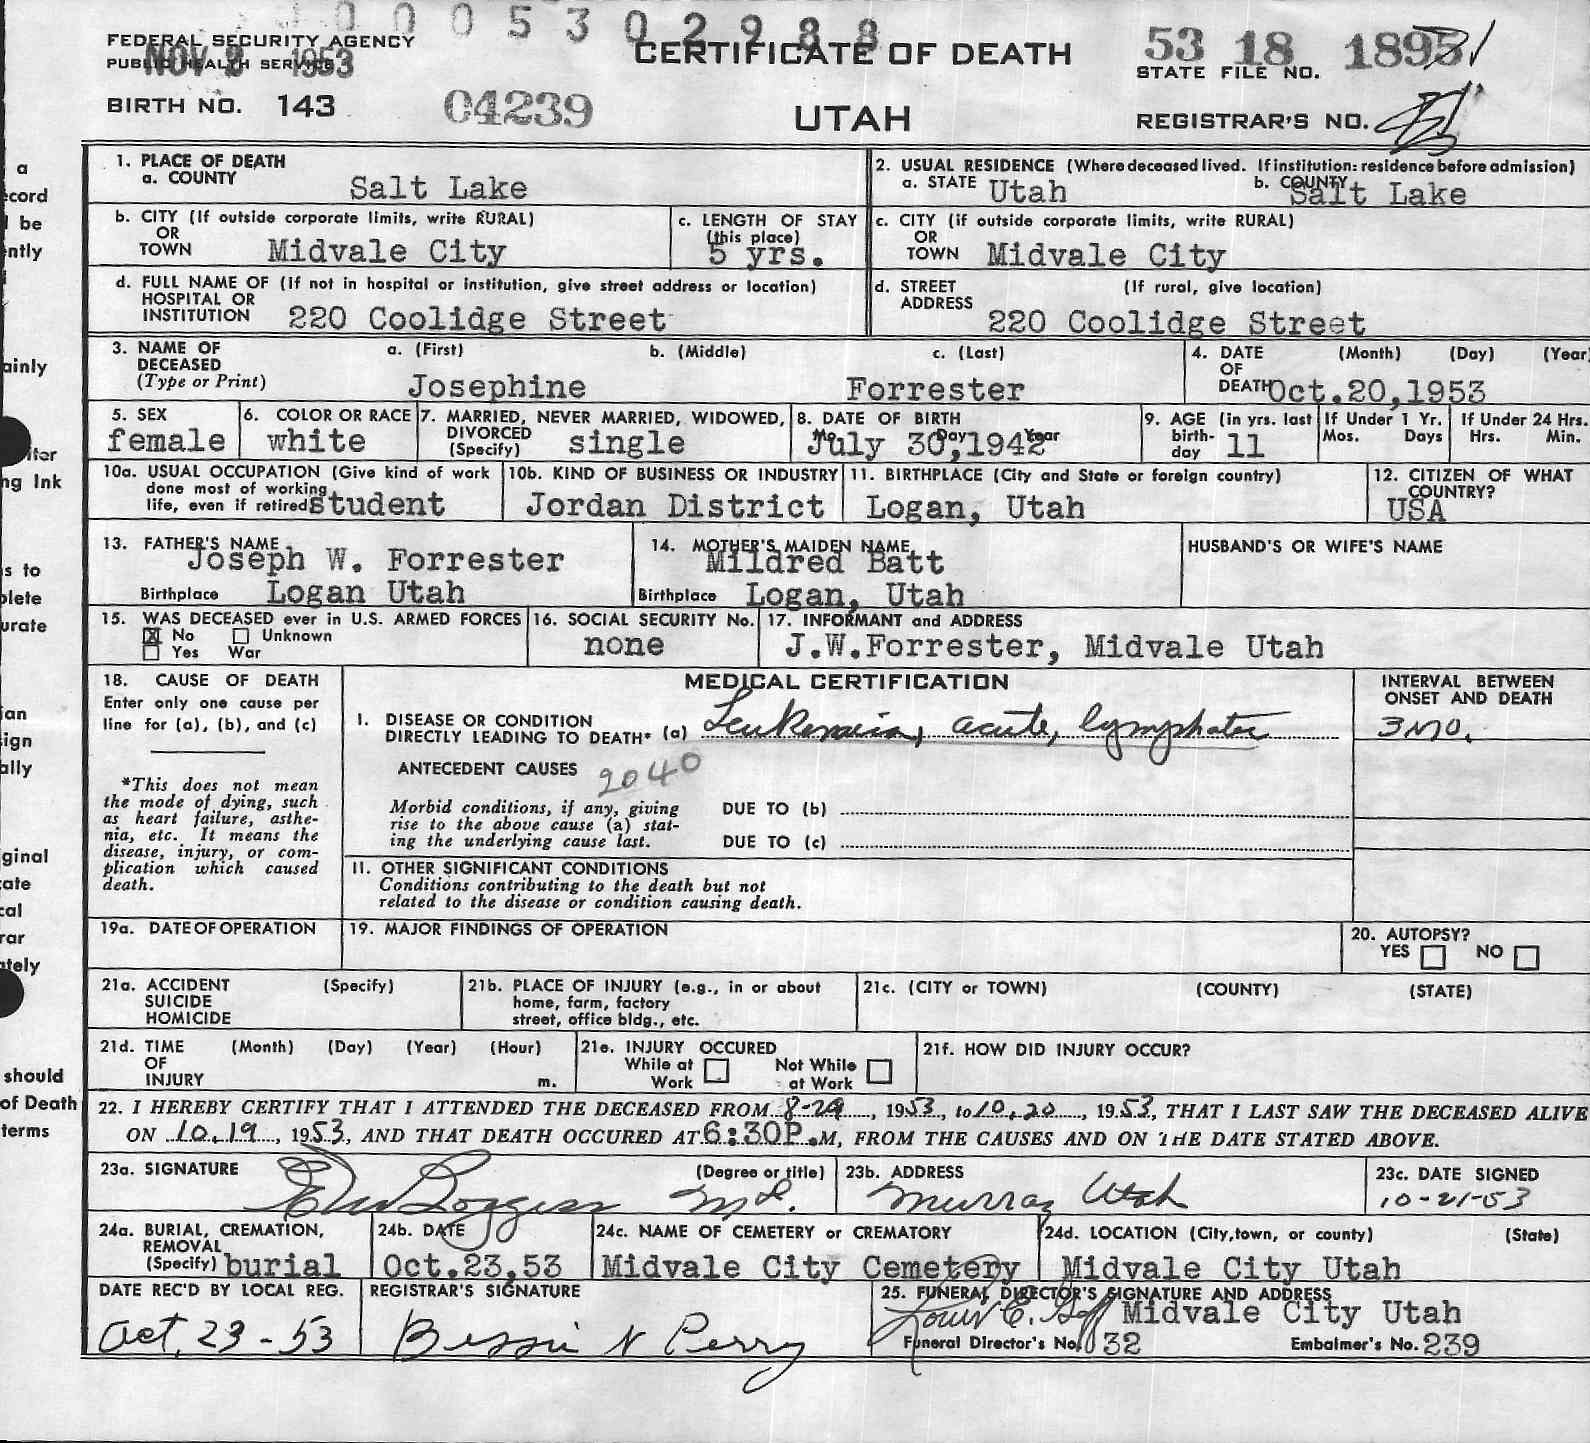 0 0 0 5 3 0 2 9 8 8
FEDERAL SECURITY AGENCY
PUBLIC HEALTH SERVICE
NOV 2 1953
CERTIFICATE OF DEATH
53 18
STATE FILE NO.
BIRTH NO. 143
04239
UTAH
REGISTRAR'S NO.
1. PLACE OF DEATH
a. COUNTY Salt Lake
2. USUAL RESIDENCE (Where deceased lived. If institution: residence before admission)
a. STATE Utah b. COUNTY Salt Lake
b. CITY (If outside corporate limits, write RURAL)
OR
TOWN Midvale City
c. LENGTH OF STAY
(this place)
5 yrs.
c. CITY (if outside corporate limits, write RURAL)
OR
TOWN Midvale City
d. FULL NAME OF (If not in hospital or institution, give street address or location)
HOSPITAL OR
INSTITUTION 220 Coolidge Street
d. STREET (If rural, give location)
ADDRESS
220 Coolidge Street
3. NAME OF a. (First) b. (Middle) c. (Last)
DECEASED
(Type or Print) Josephine Forrester
4. DATE (Month) (Day) (Year
OF
DEATH Oct.20,1953
5. SEX
female
6. COLOR OR RACE
white
7. MARRIED, NEVER MARRIED, WIDOWED,
DIVORCED
(Specify) single
8. DATE OF BIRTH
Mo. Day Year
July 30,1942
9. AGE (in yrs. last
birth-
day 11
If Under 1 Yr.
Mos. Days
If Under 24 Hrs.
Hrs. Min.
10a. USUAL OCCUPATION (Give kind of work
done most of working
life, even if retired student
10b. KIND OF BUSINESS OR INDUSTRY
Jordan District
11. BIRTHPLACE (City and State or foreign country)
Logan, Utah
12. CITIZEN OF WHAT
COUNTRY?
USA
13. FATHER'S NAME
Joseph W. Forrester
Birthplace Logan Utah
14. MOTHER'S MAIDEN NAME
Mildred Batt
Birthplace Logan, Utah
HUSBAND'S OR WIFE'S NAME
15. WAS DECEASED ever in U.S. ARMED FORCES
X No Unknown
Yes War
16. SOCIAL SECURITY No.
none
17. INFORMANT and ADDRESS
J.W.Forrester, Midvale Utah
18. CAUSE OF DEATH
Enter only one cause per
line for (a), (b), and (c)
*This does not mean
the mode of dying, such
as heart failure, asthe-
nia, etc. It means the
disease, injury, or com-
plication which caused
death.
MEDICAL CERTIFICATION
INTERVAL BETWEEN
ONSET AND DEATH
I. DISEASE OR CONDITION
DIRECTLY LEADING TO DEATH* (a) Leukemia, acute, lymphatic
3 mo.
ANTECEDENT CAUSES 2040
Morbid conditions, if any, giving
rise to the above cause (a) stat-
ing the underlying cause last.
DUE TO (b)
DUE TO (c)
II. OTHER SIGNIFICANT CONDITIONS
Conditions contributing to the death but not
related to the disease or condition causing death.
19a. DATE OF OPERATION
19. MAJOR FINDINGS OF OPERATION
20. AUTOPSY?
YES NO
21a. ACCIDENT (Specify)
SUICIDE
HOMICIDE
21b. PLACE OF INJURY (e.g., in or about
home, farm, factory
street, office bldg., etc.
21c. (CITY or TOWN) (COUNTY) (STATE)
21d. TIME (Month) (Day) (Year) (Hour)
OF
INJURY m.
21e. INJURY OCCURED
While at Not While
Work at Work
21f. HOW DID INJURY OCCUR?
22. I HEREBY CERTIFY THAT I ATTENDED THE DECEASED FROM 8-29, 1953, to 10.20, 1953, THAT I LAST SAW THE DECEASED ALIVE
ON 10.19, 1953, AND THAT DEATH OCCURED AT 6:30P.M, FROM THE CAUSES AND ON THE DATE STATED ABOVE.
23a. SIGNATURE (Degree or title)
Boggess M.D.
23b. ADDRESS
Murray Utah
23c. DATE SIGNED
10-21-53
24a. BURIAL, CREMATION,
REMOVAL
(Specify) burial
24b. DATE
Oct.23,53
24c. NAME OF CEMETERY or CREMATORY
Midvale City Cemetery
24d. LOCATION (City,town, or county) (State)
Midvale City Utah
DATE REC'D BY LOCAL REG.
Oct, 23-53
REGISTRAR'S SIGNATURE
Bessie N Perry
25. FUNERAL DIRECTOR'S SIGNATURE AND ADDRESS
Louis E. Goff Midvale City Utah
Funeral Director's No. 32 Embalmer's No. 239
a
cord
be
ntly
ainly
ng Ink
s to
plete
urate
ian
ign
ally
ginal
ate
cal
rar
ately
should
of Death
terms